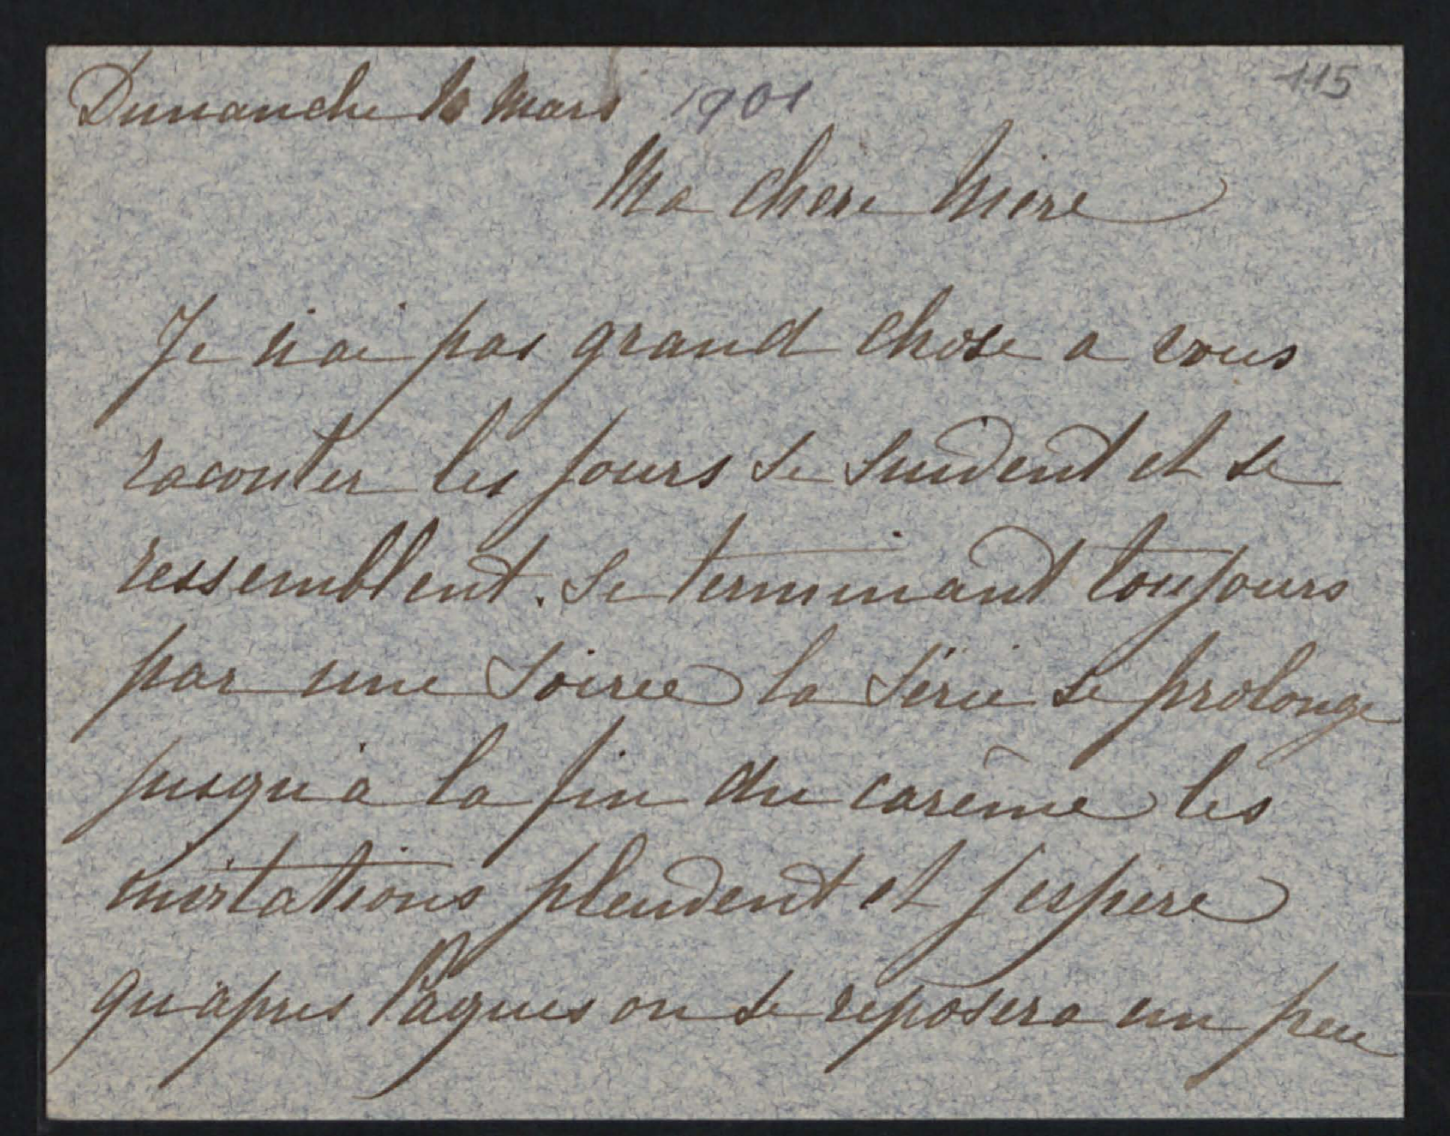 Dimanche 10 Mars 1901
115
Ma chere Mère
Je n'ai pas grand chose a vous
raconter les jours se suivent et se
ressemblent. Se terminant toujours
par une soiree la série se prolonge
jusqu'à la fin du carême les
invitations pleuvent et j'espere
qu'apres Pâques on se reposera un peu